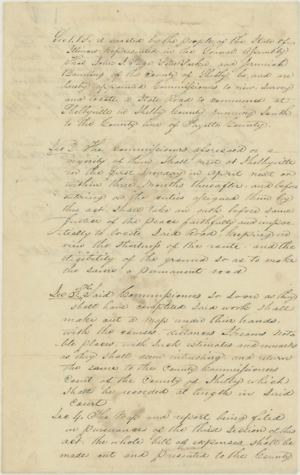 Sec 1. Be it enacted by the people of the State of
Illinois represented in the General Assembly
That John S Page Peter Parker and Jeremiah
Banning of the County of Shelby be and are
hereby appointed Commissioners to view survey
and locate a State Road to commence at
Shelbyville in Shelby County running South
to the County line of Fayette County.
Sec 2 The Commissioners aforesaid or a
majority of them shall meet at Shelbyville
on the first Monday in April next or
within three months thereafter and before
entering on the duties assigned them by
this act shall take an oath before some
Justice of the peace faithfully and impar
tially to locate said Road keeping in
view the shortness of the route and the
eligibility of the ground so as to make
the same a permanent road
Sec 3rd Said Commissioners so soon as they
shall have completed said work shall
make out a map under their hands
with the courses distances streams nota
ble places with such estimates and remarks
as they shall deem interesting and return
the same to the County Commissioners
Court of the County of Shelby which
shall be recorded at length in said
Court
Sec 4 The Map and report being filed
in pursuance of the third section of this
act the whole bill of expenses shall be
made out and presented to the County